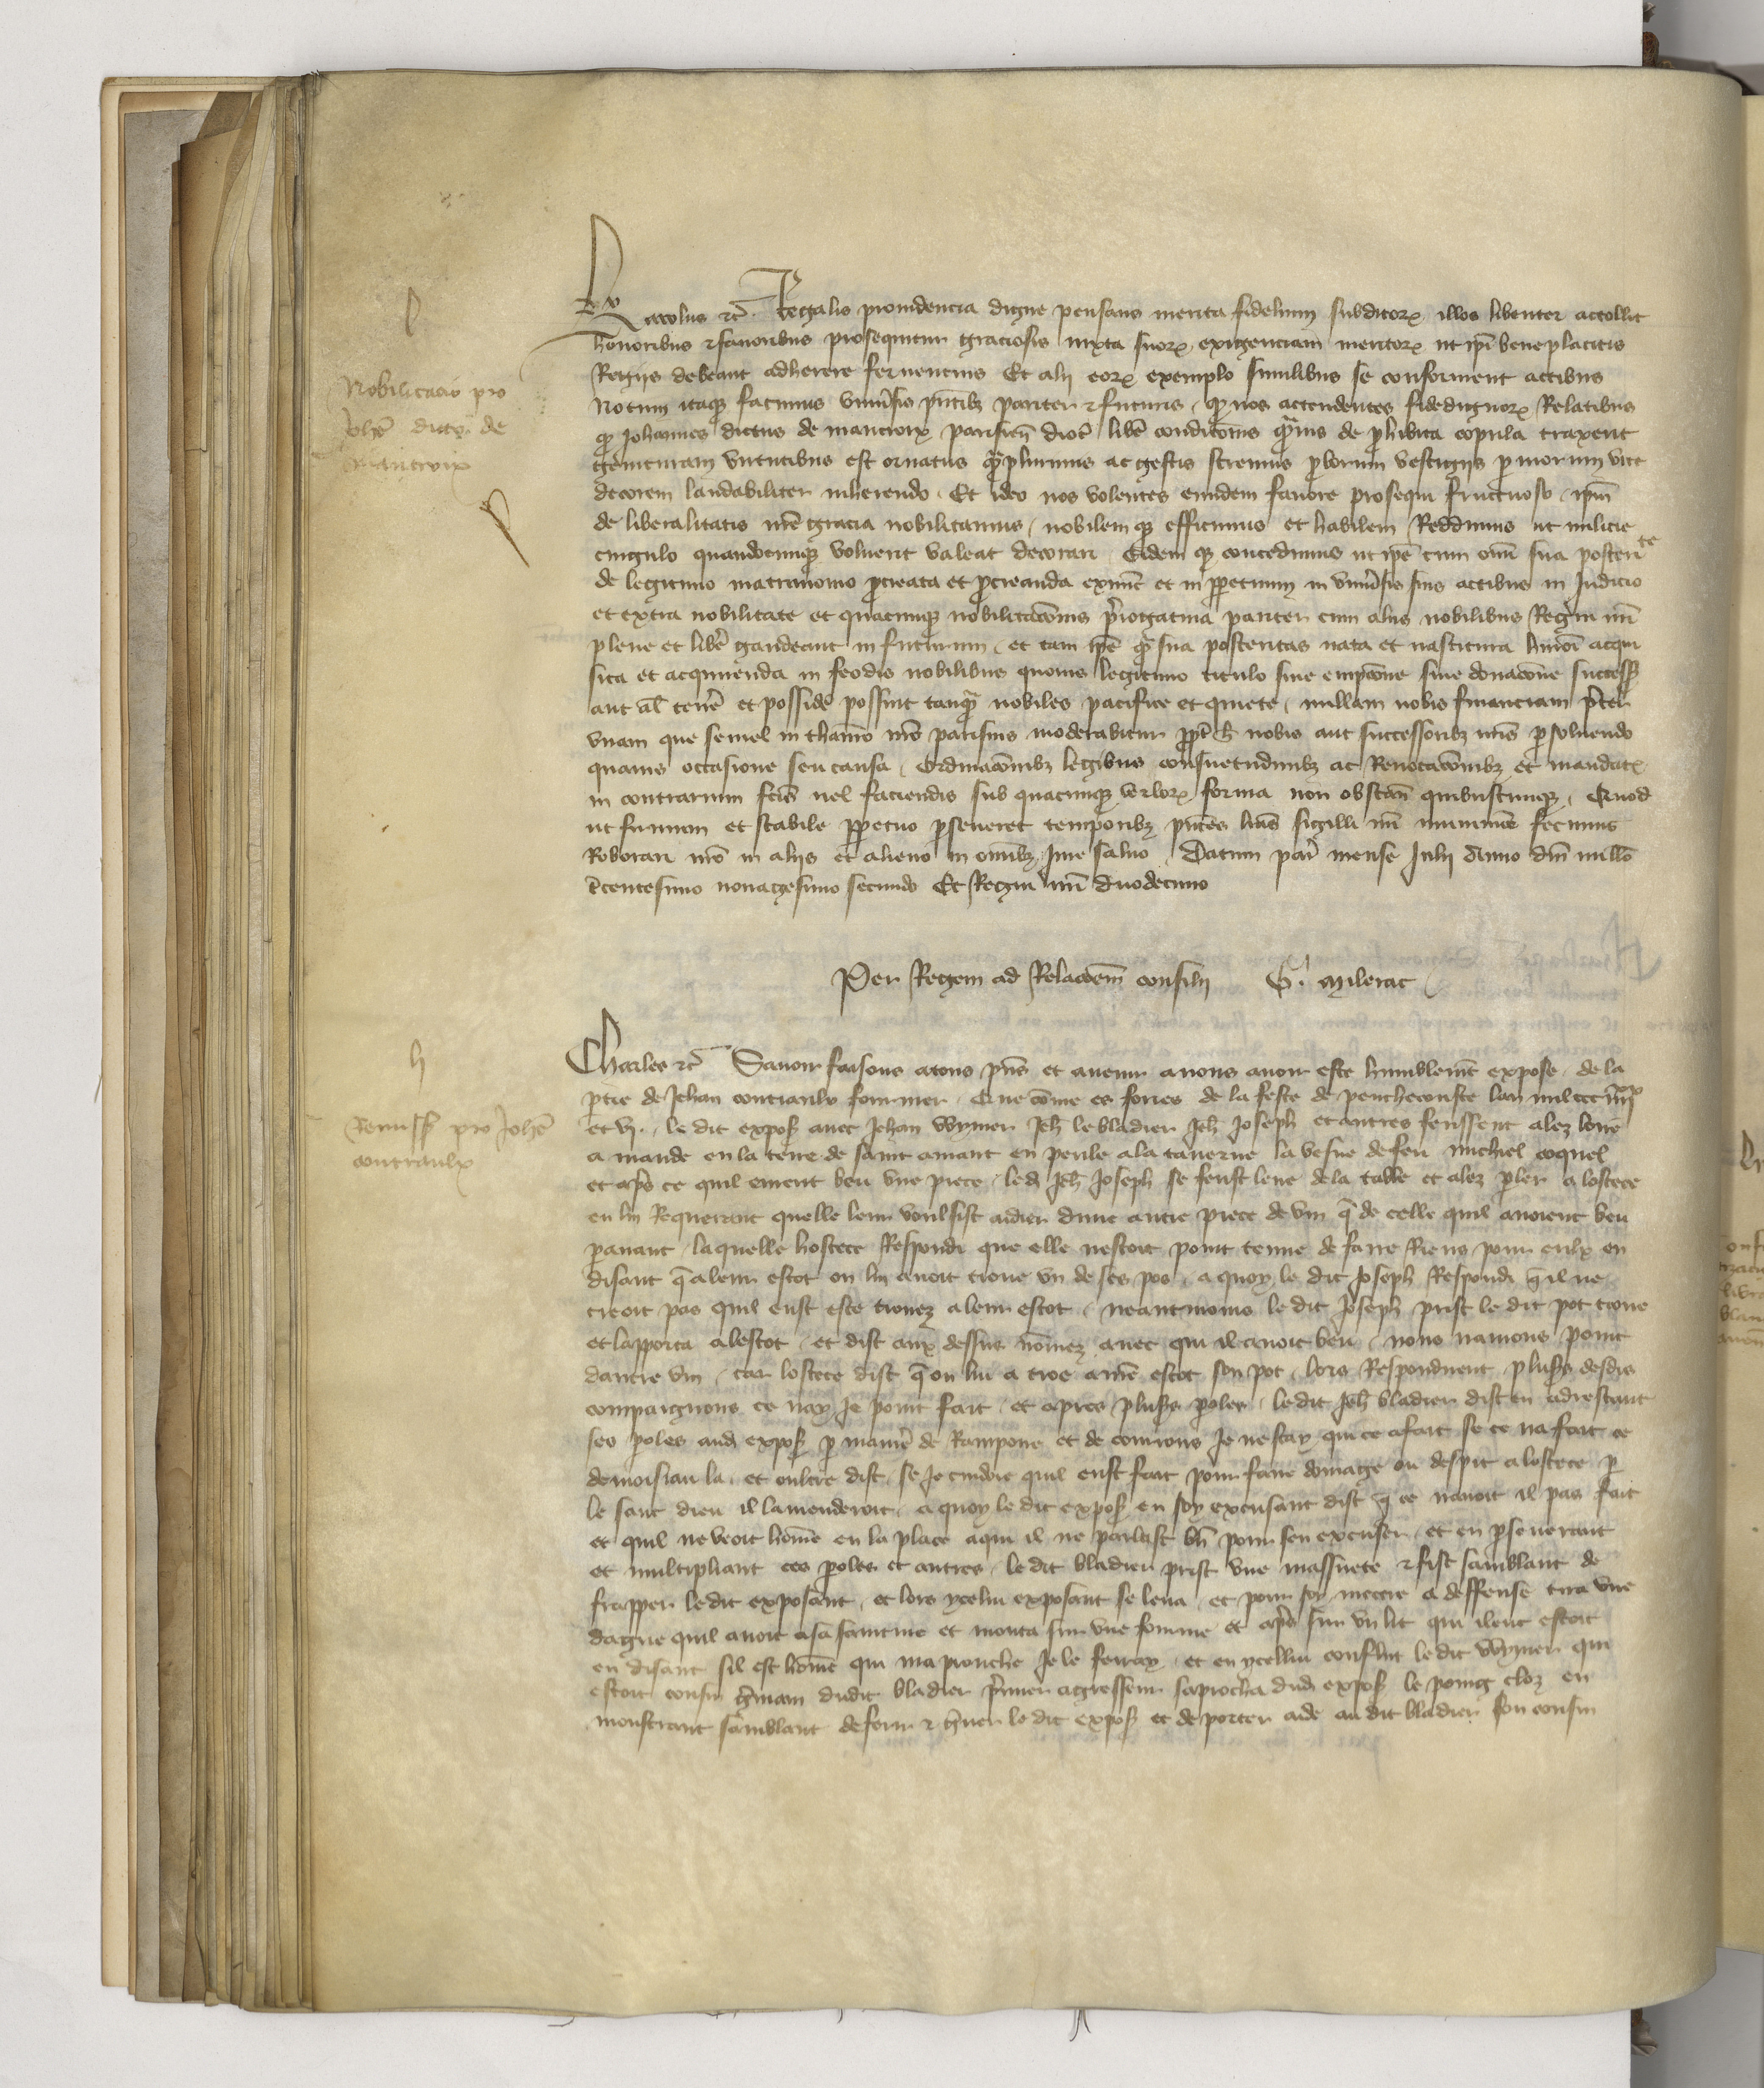 Nobilitacio pro
Johe dicto de
Mantroix
Karolus etc Regalis prouidencia digne pensans merita fidelium subditorx illos libenter attollit
honoribus et fauoribus prosequitur graciosis iuxta suorx exigenciam meritorx ut ipi beneplacitis
Regijs debeant adherere feruencius Et alij eorx exemplo similibus se conforment actibus
Notum itaqz facimus vniuersis pntibz pariter et futuris qd nos attendentes fidedignorx Relatibus
qd Johannes dictus de mantroix parisien dioc libe condicois quis de phibita copula traxerit
genituram virtutibus est ornatus qplurimis ac gestis strenuis pborum vestigijs p morum vite
decorem laudabiliter inherendo Et ideo nos volentes eundem fauore prosequi fructuoso ipm
de liberalitatis nre gracia nobilitamus nobilemqz efficimus et habilem Reddimus ut milicie
cingulo quandocunqz voluerit valeat decorari Eidemqz concedimus ut ipe cum omi sua posterite
de legitimo matrimonio pcreata et pcreanda eximt et in ppetuum in vniuersis suis actibus in Judicio
et extra nobilitate et quacunqz nobilitacois prerogatiua pariter cum alijs nobilibus Regni nri
plene et libe gaudeant in futurum et tam ipe q sua posteritas nata et nascitura huioi acqui
sita et acquirenda in feodis nobilibus quouis legitimo titulo siue empcoe siue donacoe success
aut al tene et posside possint tanq nobiles pacifice et quiete nullam nobis financiam preter
vnam que semel in thauro nro parisius moderabitur nobis aut successoribz nris psoluendo
quauis occasione seu causa Ordinacoibz legibus consuetudinibz ac Reuocacoibz et mandatx
in contrarium fcis uel faciendis sub quacunqz verborx forma non obstan quibuscunqz Quod
ut firmum et stabile ppetuo pseueret temporibz pntes lras sigilli nri munimine fecimus
Roborari nro in alijs et alieno in omibz Jure saluo Datum par mense Julij Anno dni millo
ccentesimo nonagesimo secundo Et Regni nri duodecimo
Per Regem ad Relacoem consilij G. milerac
Remiss pro Johe
contraulx
Charles etc Sauoir faisons a tous pns et auenir a nous auoir este humblemt expose de la
ptie de Jehan contraulx fournier Que come es foires de la feste de pencthecouste lan mil ccc iiijxx
et vj le dit expos auec Jehan Wymer Jeh le bladier Jeh Joseph et autres feussent alez boire
a mande en la terre de saint amant en peule a la tauerne la vesue de feu michiel coquel
et aps ce quil eurent beu vne piece led Jeh Joseph se feust leue de la table et alez pler a lostece
en lui Requerant quelle leur voulsist aidier dune autre piece de vin q de celle quil auoient beu
pauant laquelle hostece Respondi que elle nestoit point tenue de faire Riens pour eulx en
disant q a leur escot on lui auoit troue vn de ses pos a quoy le dit Joseph Respondi qil ne
creoit pas quil eust este trouez a leur escot neantmoins le dit Joseph prist le dit pot troue
et lapporta a lescot et dist aux dessus nomez auec qui il auoit beu nous naurons point
dautre vin car lostece dist q on lui a troe a nre escot son pot lors Respondirent pluss desdis
compaignons ce nay Je point fait et apres pluss poles le dit Jeh bladier dist en adrescant
ses poles aud expos p maniere de Rampone et de couroux Je ne scay qui ce a fait se ce na fait ce
demoisiau la et oultre dist se Je cuidoie quil eust fait pour faire domage ou despit a lostece p
le sanc dieu il lamenderoit a quoy le dit expos en soy excusant dist q ce nauoit il pas fait
et quil ne veoit home en la place a qui il ne parlast bn pour sen excuser et en pseuerant
et multipliant ces poles et autres le dit bladier prist vne massuete et fist samblant de
frapper le dit exposant et lors ycelui exposant se leua et pour soy mectre a deffense tira vne
dague quil auoit a sa saintture et monta sur vne fourme et aps sur vn lit qui ileuc estoit
en disant sil est home qui maprouche Je le ferray et en ycellui conflict le dit Wymer qui
estoit cousin germain dudit bladier pmier agresseur saprocha dud expos le poing clos en
monstrant samblant de ferir et greuer le dit expos et de porter aide au dit bladier son cousin